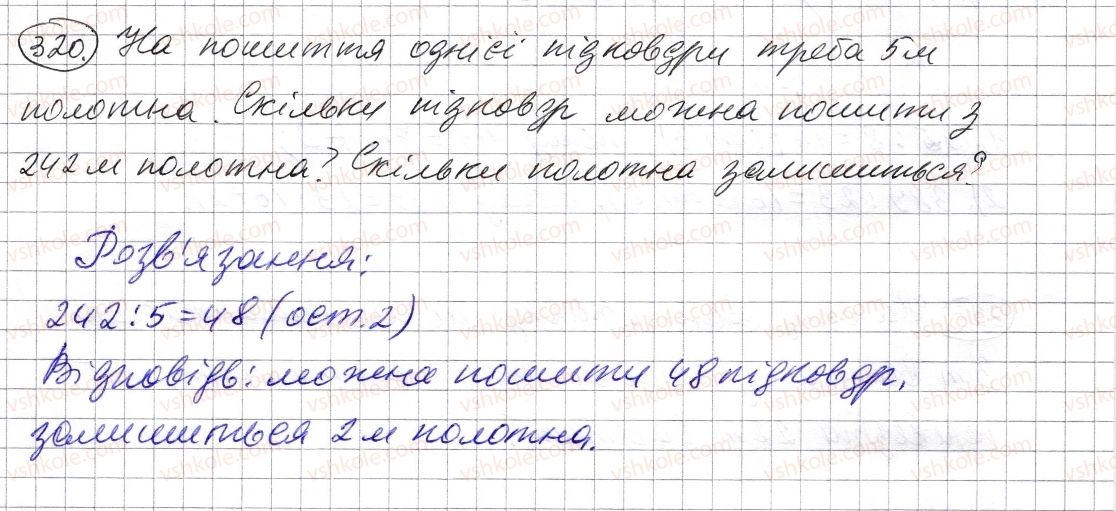 320. На пошиття однієї підковдри треба 5 м
полотна. Скільки підковдр можна пошити з
242 м полотна? Скільки полотна залишиться?
Розв'язання:
242:5=48 (ост.2)
Відповідь: можна пошити 48 підковдр,
залишиться 2 м полотна.